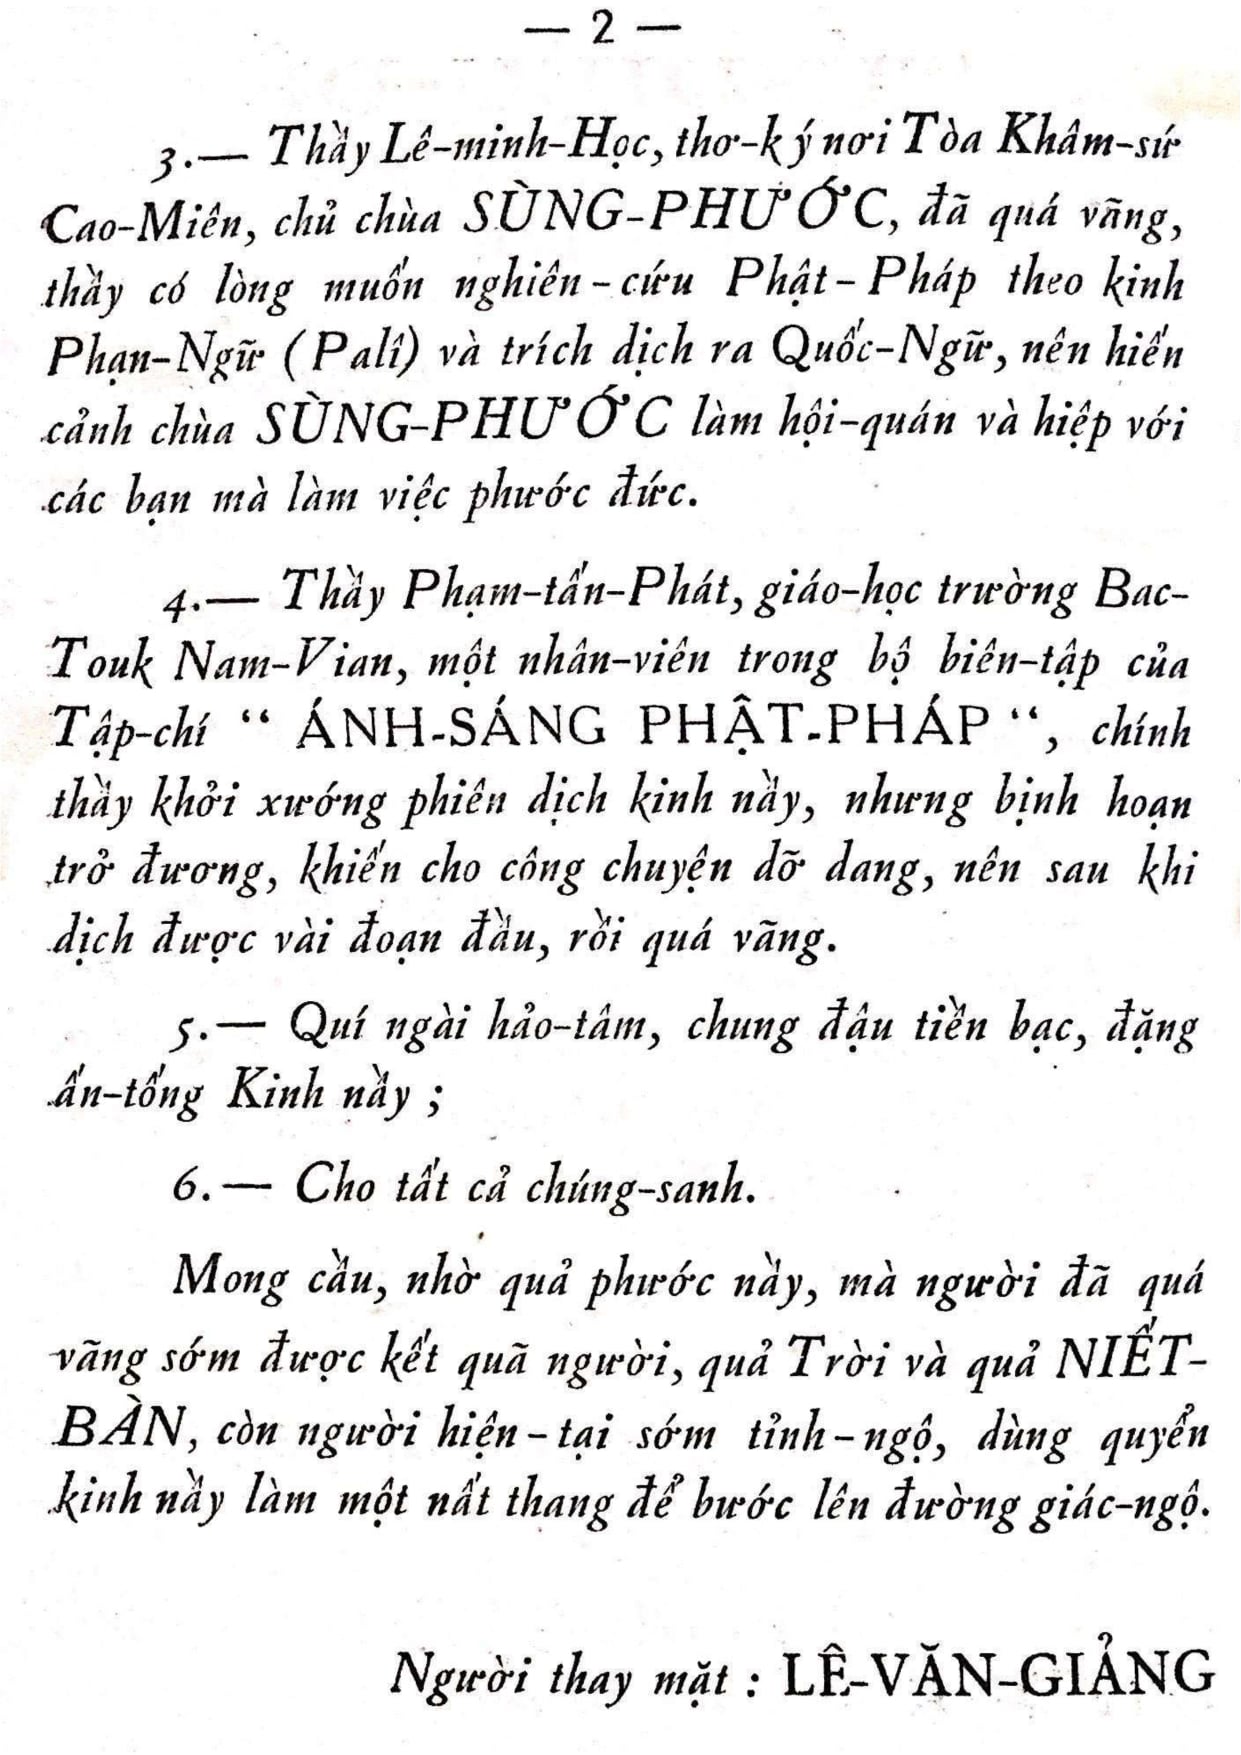 — 2 —
3.— Thầy Lê-minh-Học, thơ-ký nơi Tòa Khâm-sứ
Cao-Miên, chủ chùa SÙNG-PHƯỚC, đã quá vãng,
thầy có lòng muốn nghiên-cứu Phật-Pháp theo kinh
Phạn-Ngữ (Palî) và trích dịch ra Quốc-Ngữ, nên hiến
cảnh chùa SÙNG-PHƯỚC làm hội-quán và hiệp với
các bạn mà làm việc phước đức.
4.— Thầy Phạm-tấn-Phát, giáo-học trường Bac-
Touk Nam-Vian, một nhân-viên trong bộ biên-tập của
Tập-chí “ ÁNH-SÁNG PHẬT-PHÁP “, chính
thầy khởi xướng phiên dịch kinh nầy, nhưng bịnh hoạn
trở đương, khiến cho công chuyện dỡ dang, nên sau khi
dịch được vài đoạn đầu, rồi quá vãng.
5.— Quí ngài hảo-tâm, chung đậu tiền bạc, đặng
ấn-tống Kinh nầy ;
6.— Cho tất cả chúng-sanh.
Mong cầu, nhờ quả phước nầy, mà người đã quá
vãng sớm được kết quã người, quả Trời và quả NIẾT-
BÀN, còn người hiện-tại sớm tỉnh-ngộ, dùng quyển
kinh nầy làm một nất thang để bước lên đường giác-ngộ.
Người thay mặt : LÊ-VĂN-GIẢNG